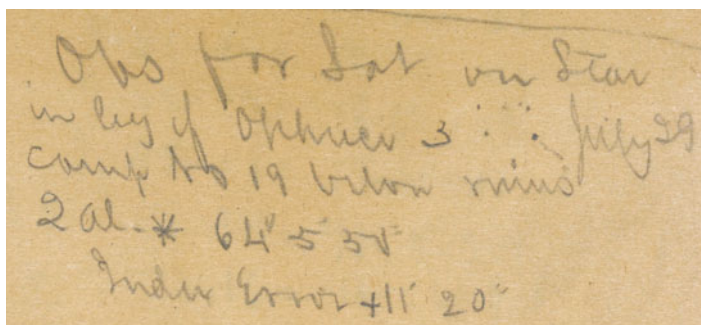 Obs for Lat on Star
in leg of Ophiuci 3 ∴ July 29
Camp No 19 below
2 al. * 64° 5' 50"
Index Error + 11' 20"